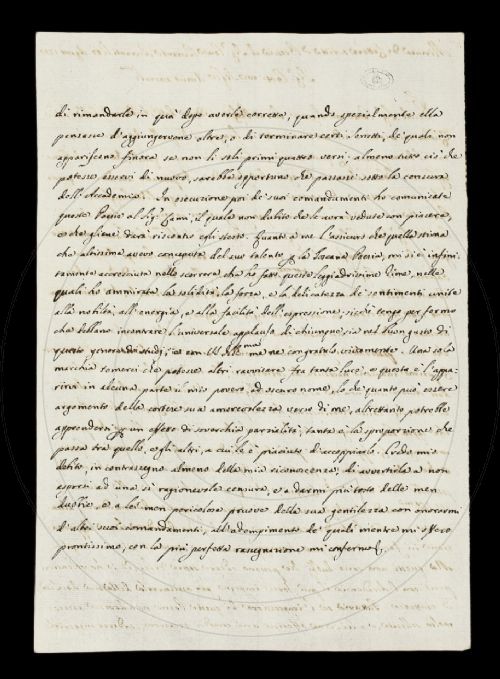 di rimandarle in quà dopo averle corrette, quando spezialmente ella
pensasse d'aggiungervene altre, o di terminare certi Sonetti, de' quali non
appariscono finora se non li soli primi quattro versi, almeno tutto ciò che
potesse esservi di nuovo, sarebbe opportuno che passasse sotto la censura
dell'Accademia. In esecuzione poi de' suoi comandamenti ho comunicate
queste Poesie al Sigr. Lami, il quale non dubito che le avrà vedute con piacere,
e che gliene darà riscontro egli stesso. Quanto a me l'assicuro che quella stima
che altissima avevo conceputa del suo talento p la Toscana Poesia, mi si è infini-
tamente accresciuta nello scorrere che ho fatto queste leggiadrissime Rime, nelle
quali ho ammirata la solidità, la forza, e la delicatezza de' sentimenti unita
alla nobiltà, all'energia, e alla facilità dell'espressione; sicchè tengo per fermo
che debbano incontrare l'universale applauso di chiunque sia nel buon gusto di
questo genere di studj, e con VS. Illma me ne congratulo vivamente. Una sola
macchia temerei che potesse altri ravvisare fra tanta luce, e questa è l'appa-
rirvi in alcuna parte il mio povero, ed oscuro nome, lo che quanto può essere
argomento della cortese sua amorevolezza verso di me, altrettanto potrebbe
apprendersi p un effetto di soverchia parzialità, tanta è la sproporzione che
passa tra quello, e gli altri, a cui le è piaciuto di accoppiarlo. Credo mio
debito, in contrassegno almeno della mia riconoscenza, di avvertirla a non
esporsi ad una sì ragionevole censura, e a darmi più tosto delle men
dubbie, e a lei men pericolose pruove della sua gentilezza con onorarmi
di altri suoi comandamenti, all'adempimento de' quali mentre mi offero
prontissimo, con la più perfetta rassegnazione mi confermo